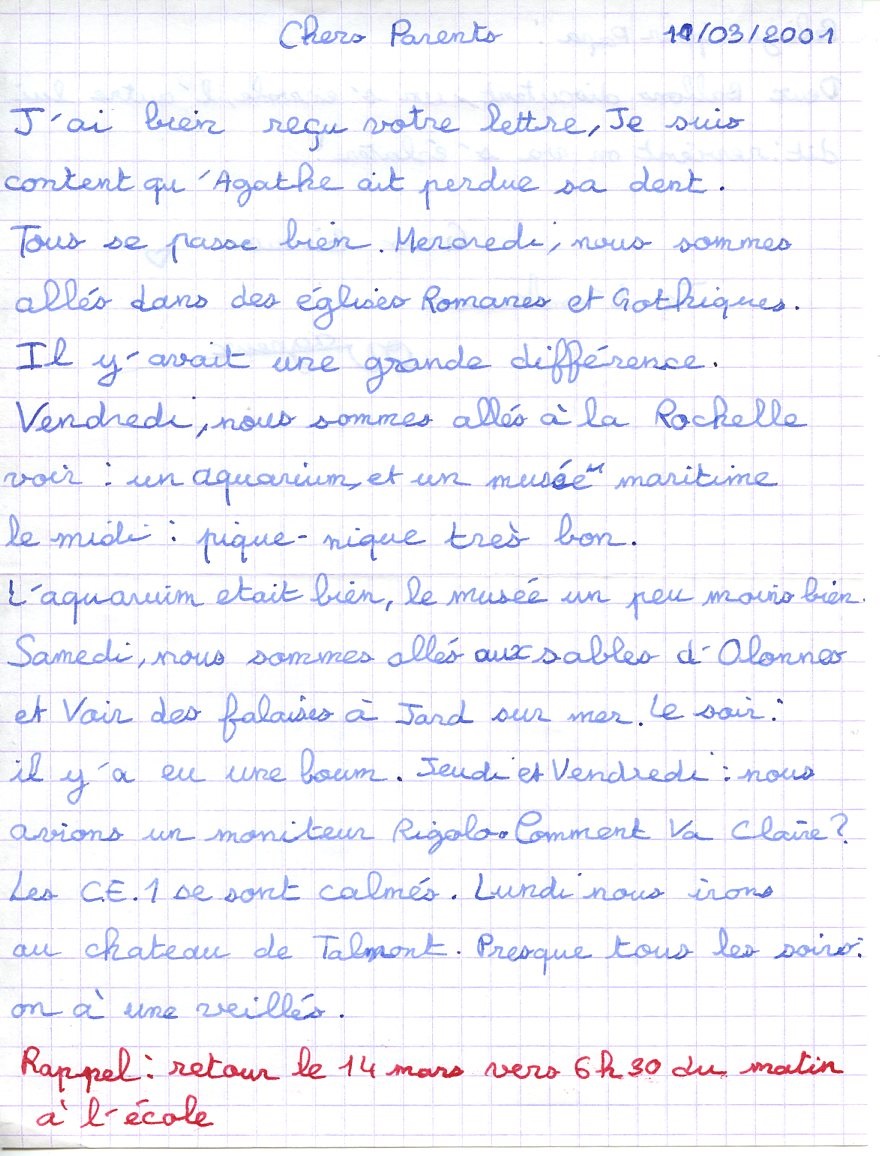 Chers Parents 11/03/2001
J'ai bien reçu votre lettre, Je suis
content qu'Agathe ait perdue sa dent.
Tous se passe bien. Mercredi, nous sommes
allés dans des églises Romanes et Gothiques.
Il y'avait une grande différence.
Vendredi, nous sommes allés à la Rochelle
voir : un aquarium, et un musée maritime
le midi : pique-nique très bon.
L'aquaruim etait bien, le musée un peu moins bien.
Samedi, nous sommes allés aux sables d'Olonnes
et Voir des falaises à Jard sur mer. Le soir :
il y'a eu une boum. Jeudi et Vendredi : nous
avions un moniteur Rigolo. Comment Va Claire ?
Les C.E.1 se sont calmés. Lundi nous irons
au chateau de Talmont. Presque tous les soirs :
on à une veillés.
Rappel : retour le 14 mars vers 6h30 du matin
à l'école